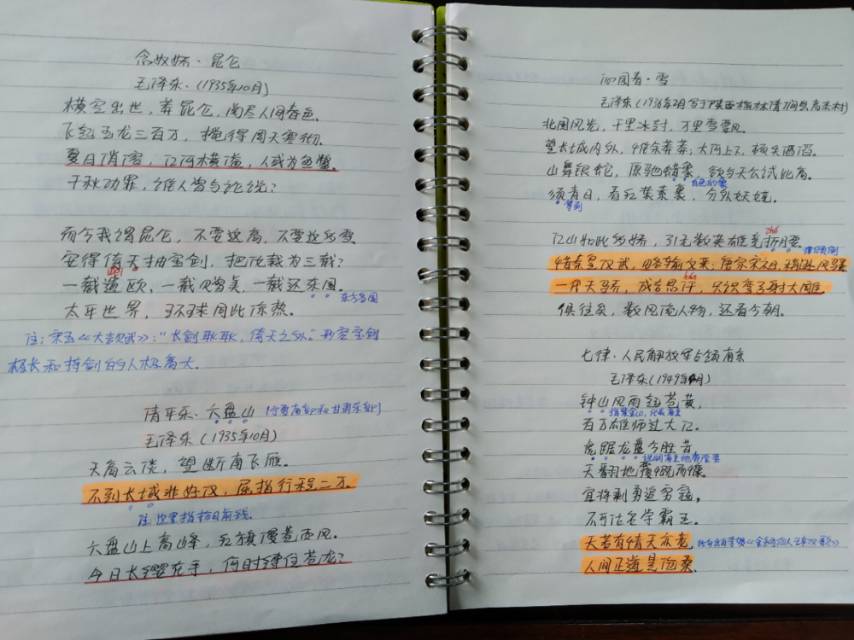 念奴娇·昆仑
毛泽东·(1935年10月)
横空出世,莽昆仑,阅尽人间春色。
飞起玉龙三百万,搅得周天寒彻。
夏日消溶,江河横溢,人或为鱼鳖。
千秋功罪,谁人曾与论说?
而今我谓昆仑,不要这高,不要这多雪。
安得倚天抽宝剑,把汝裁为三截?
一截遗欧,一截赠美,一截还东国。
太平世界,环球同此凉热。
注:宋玉《大言赋》:"长剑耿耿,倚天之外。"形容宝剑
极长和持剑的人极高大。
清平乐·六盘山
毛泽东(1935年10月)
天高云淡,望断南飞雁。
不到长城非好汉,屈指行程二万。
六盘山上高峰,红旗漫卷西风。
今日长缨在手,何时缚住苍龙?
沁园春·雪
毛泽东(1936年2月
北国风光,千里冰封,万里雪飘。
望长城内外,惟余莽莽;大河上下,顿失滔滔。
山舞银蛇,原驰蜡象,欲与天公试比高。
须晴日,看红装素裹,分外妖娆。
江山如此多娇,引无数英雄竞折腰。
惜秦皇汉武,略输文采;唐宗宋祖,稍逊风骚
一代天骄,成吉思汗,只识弯弓射大雕
俱往矣,数风流人物,还看今朝。
七律·人民解放军占领南京
毛泽东(1949年4月)
钟山风雨起苍黄,
百万雄师过大江。
虎踞龙盘今胜昔
天翻地覆慨而慷。
宜将剩勇追穷寇,
不可沽名学霸王。
天若有情天亦老,
人间正道是沧桑。